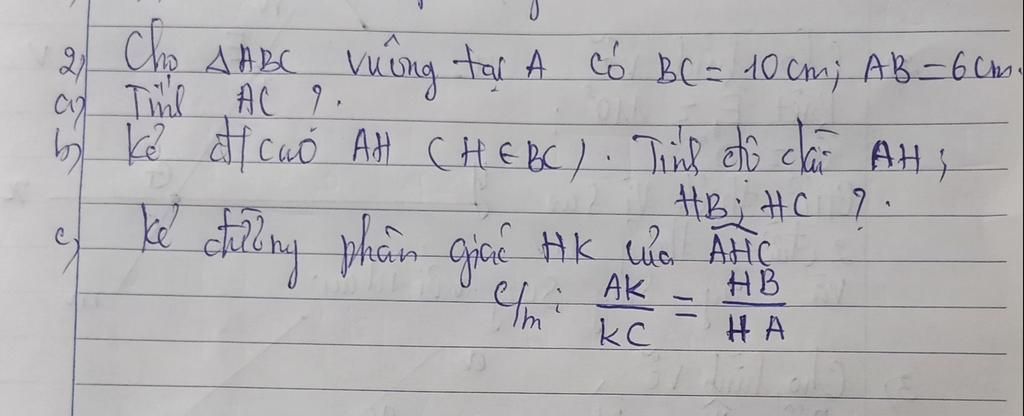 2) Cho △ABC vuông tại A có BC = 10 cm; AB = 6 cm.
a) Tính AC ?.
b) Kẻ đ/cao AH (H ∈ BC). Tính độ dài AH;
HB; HC ?.
c) Kẻ đường phân giác HK của \widehat{AHC}
c/m: \frac{AK}{KC} = \frac{HB}{HA}